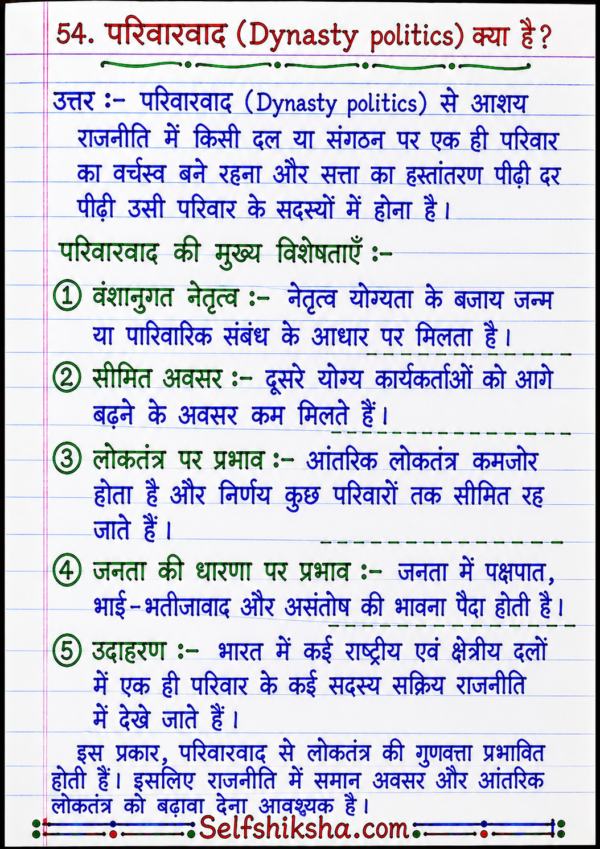 54. परिवारवाद (Dynasty politics) क्या है?
उत्तर :- परिवारवाद (Dynasty politics) से आशय
राजनीति में किसी दल या संगठन पर एक ही परिवार
का वर्चस्व बने रहना और सत्ता का हस्तांतरण पीढ़ी दर
पीढ़ी उसी परिवार के सदस्यों में होना है।
परिवारवाद की मुख्य विशेषताएँ :-
① वंशानुगत नेतृत्व :- नेतृत्व योग्यता के बजाय जन्म
या पारिवारिक संबंध के आधार पर मिलता है।
② सीमित अवसर :- दूसरे योग्य कार्यकर्ताओं को आगे
बढ़ने के अवसर कम मिलते हैं।
③ लोकतंत्र पर प्रभाव :- आंतरिक लोकतंत्र कमजोर
होता है और निर्णय कुछ परिवारों तक सीमित रह
जाते हैं।
④ जनता की धारणा पर प्रभाव :- जनता में पक्षपात,
भाई-भतीजावाद और असंतोष की भावना पैदा होती है।
⑤ उदाहरण :- भारत में कई राष्ट्रीय एवं क्षेत्रीय दलों
में एक ही परिवार के कई सदस्य सक्रिय राजनीति
में देखे जाते हैं।
इस प्रकार, परिवारवाद से लोकतंत्र की गुणवत्ता प्रभावित
होती हैं। इसलिए राजनीति में समान अवसर और आंतरिक
लोकतंत्र को बढ़ावा देना आवश्यक है।
Selfshiksha.com